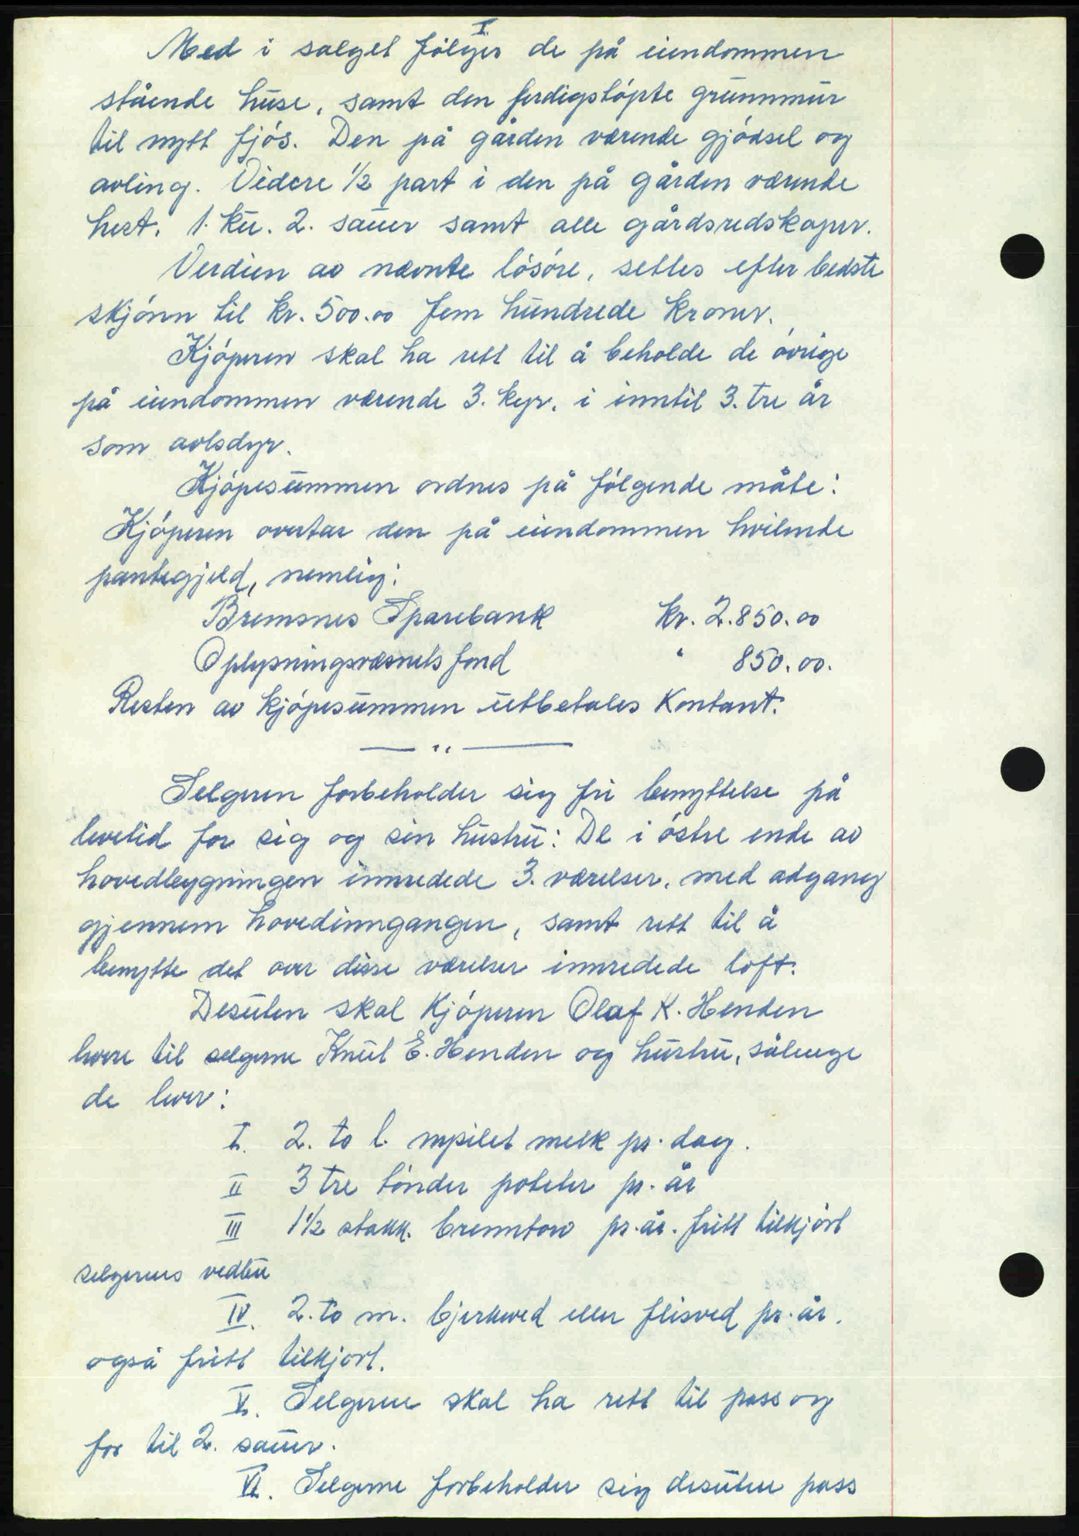 I
Med i salget følger de på eiendommen
stående huse, samt den ferdigstøpte grunnmur
til nytt fjøs. Den på gården værende gjødsel og
avling. Videre 1/2 part i den på gården værende
hest, 1. ku. 2. sauer samt alle gårdsredskaper.
Verdien av nævnte løsøre, settes efter bedste
skjønn til kr. 500.00 fem hundrede kroner.
Kjøperen skal ha rett til å beholde de øvrige
på eiendommen værende 3. kyr. i inntil 3. tre år
som avlsdyr.
Kjøpesummen ordnes på følgende måte:
Kjøperen overtar den på eiendommen hvilende
pantegjeld, nemlig:
Bremsnes Sparebank kr. 2.850.00
Oplysningsvæsnets fond " 850.00.
Resten av kjøpesummen utbetales kontant.
— " —
Selgeren forbeholder sig fri benyttelse på
levetid for sig og sin hustru: De i østre ende av
hovedbygningen innredede 3. værelser, med adgang
gjennem hovedinngangen, samt rett til å
benytte det over disse værelser innredede loft.
Desuten skal kjøperen Olaf K. Henden
levere til selgerne Knut E. Henden og hustru, sålenge
de lever:
I. 2. to l. nysilet melk pr. dag.
II 3 tre tønder poteter pr. år
III 1 1/2 stakk. brenntorv pr. år. fritt tilkjørt
selgernes vedbu
IV. 2. to m. bjerkeved eller flisved pr. år.
også fritt tilkjørt.
V. Selgerne skal ha rett til pass og
for til 2. sauer.
VI. Selgerne forbeholder sig desuten pass